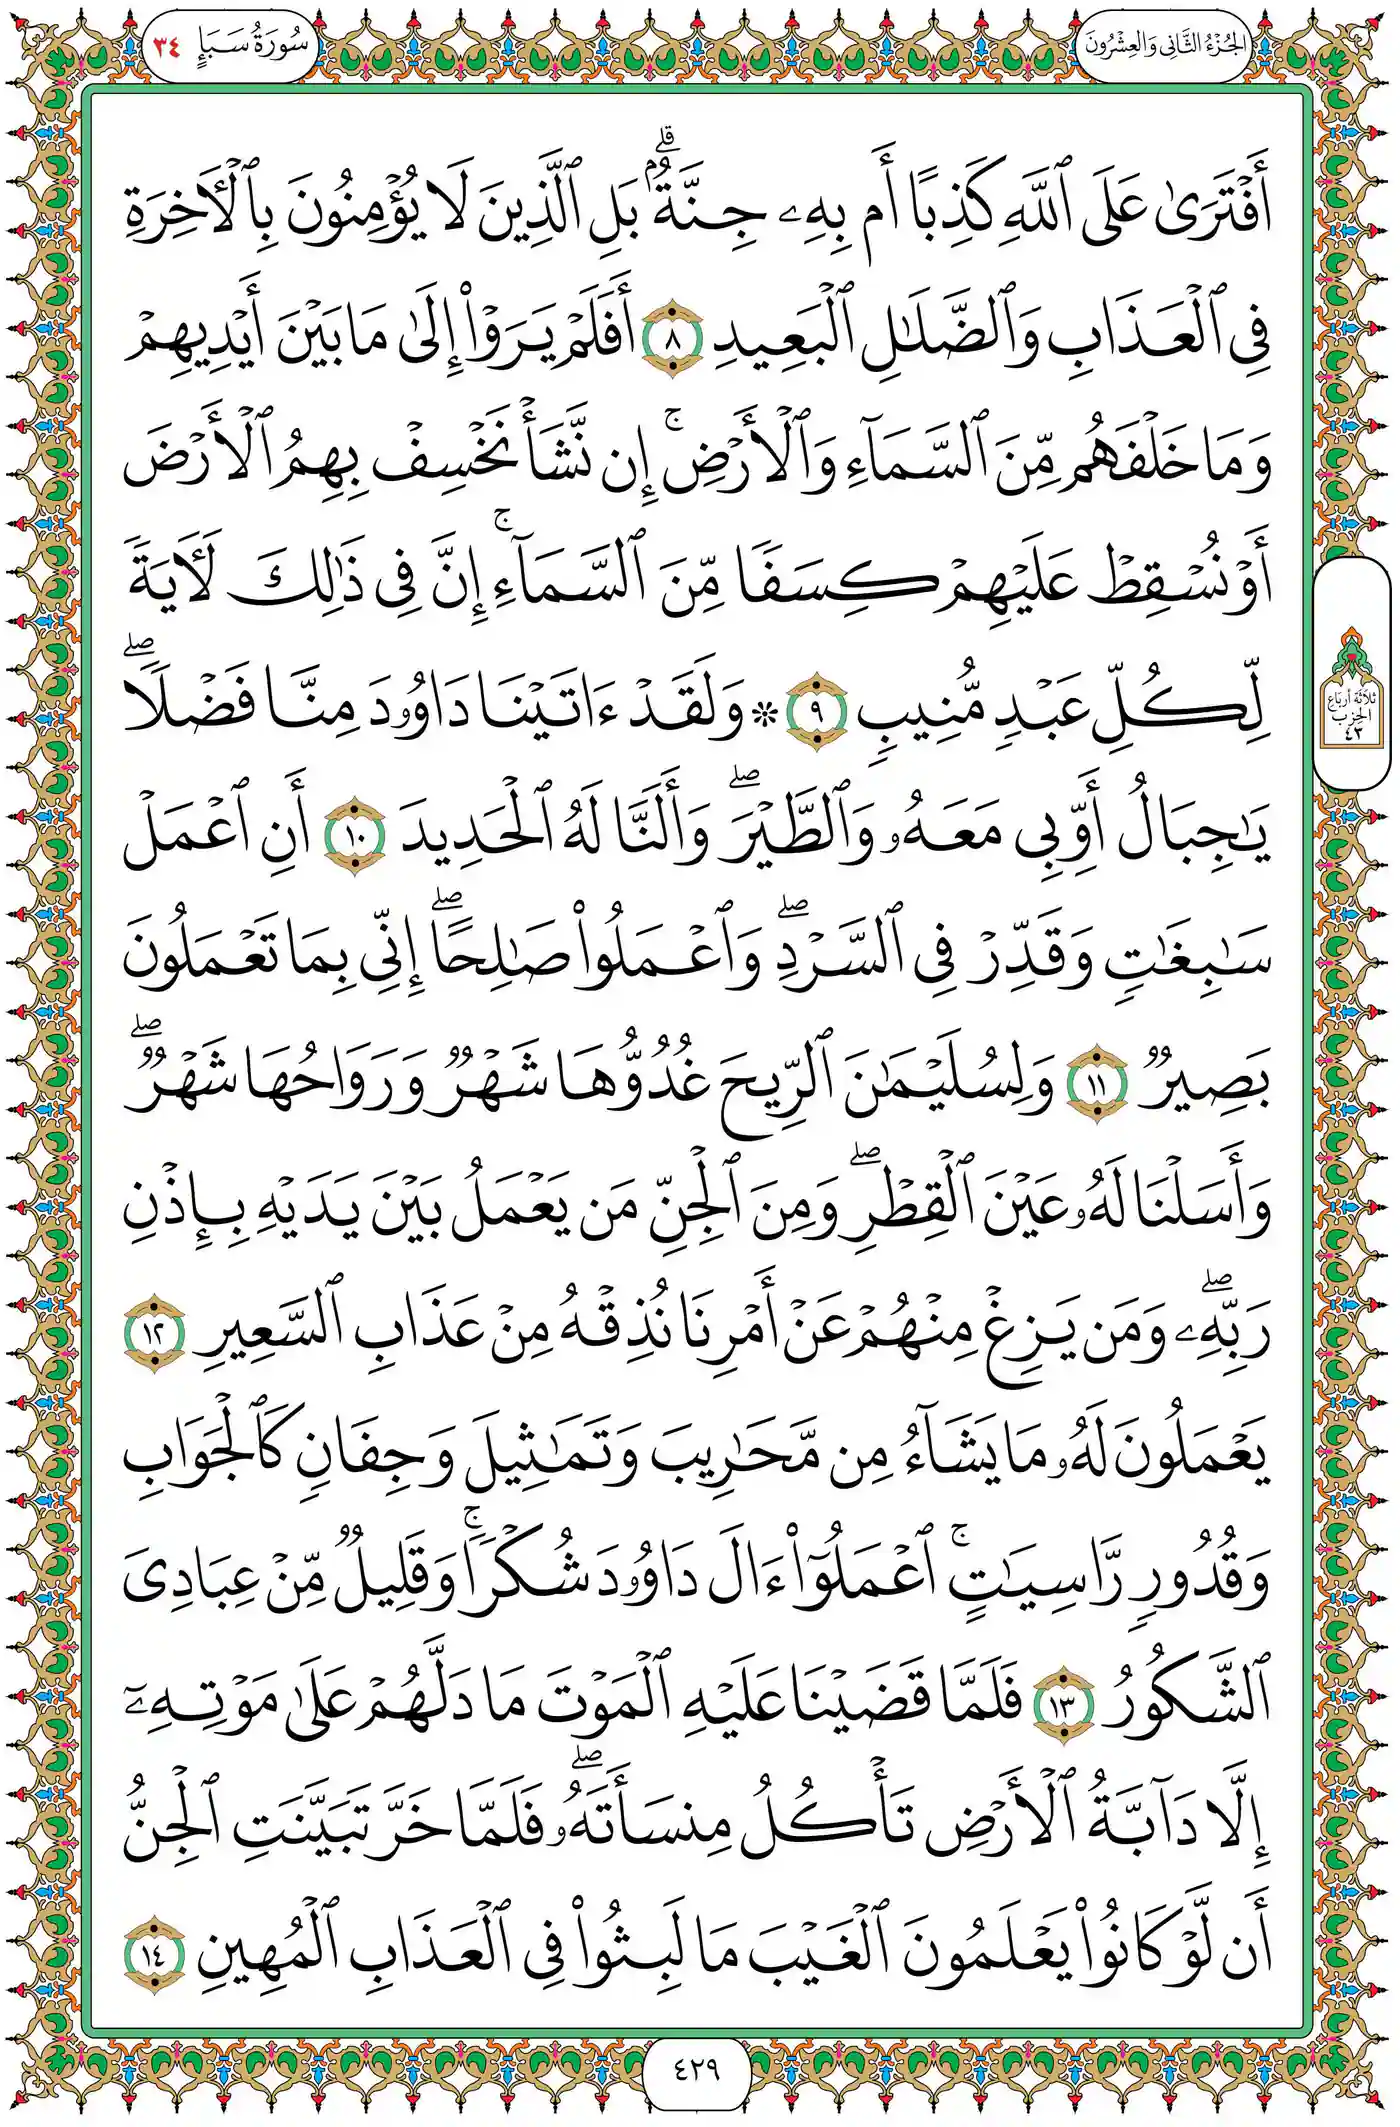 الجُزْءُ الثَّانِي وَالعِشْرُونَ
سُورَةُ سَبَإٍ ٣٤
أَفۡتَرَىٰ عَلَى ٱللَّهِ كَذِبًا أَم بِهِۦ جِنَّةُۢۗ بَلِ ٱلَّذِينَ لَا يُؤۡمِنُونَ بِٱلۡأٓخِرَةِ
فِي ٱلۡعَذَابِ وَٱلضَّلَٰلِ ٱلۡبَعِيدِ ٨ أَفَلَمۡ يَرَوۡاْ إِلَىٰ مَا بَيۡنَ أَيۡدِيهِمۡ
وَمَا خَلۡفَهُم مِّنَ ٱلسَّمَآءِ وَٱلۡأَرۡضِۚ إِن نَّشَأۡ نَخۡسِفۡ بِهِمُ ٱلۡأَرۡضَ
أَوۡ نُسۡقِطۡ عَلَيۡهِمۡ كِسَفٗا مِّنَ ٱلسَّمَآءِۚ إِنَّ فِي ذَٰلِكَ لَأٓيَةٗ
لِّكُلِّ عَبۡدٖ مُّنِيبٖ ٩ ۞ وَلَقَدۡ ءَاتَيۡنَا دَاوُۥدَ مِنَّا فَضۡلٗاۖ
يَٰجِبَالُ أَوِّبِي مَعَهُۥ وَٱلطَّيۡرَۖ وَأَلَنَّا لَهُ ٱلۡحَدِيدَ ١٠ أَنِ ٱعۡمَلۡ
سَٰبِغَٰتٖ وَقَدِّرۡ فِي ٱلسَّرۡدِۖ وَٱعۡمَلُواْ صَٰلِحًاۖ إِنِّي بِمَا تَعۡمَلُونَ
بَصِيرٞ ١١ وَلِسُلَيۡمَٰنَ ٱلرِّيحَ غُدُوُّهَا شَهۡرٞ وَرَوَاحُهَا شَهۡرٞۖ
وَأَسَلۡنَا لَهُۥ عَيۡنَ ٱلۡقِطۡرِۖ وَمِنَ ٱلۡجِنِّ مَن يَعۡمَلُ بَيۡنَ يَدَيۡهِ بِإِذۡنِ
رَبِّهِۦۖ وَمَن يَزِغۡ مِنۡهُمۡ عَنۡ أَمۡرِنَا نُذِقۡهُ مِنۡ عَذَابِ ٱلسَّعِيرِ ١٢
يَعۡمَلُونَ لَهُۥ مَا يَشَآءُ مِن مَّحَٰرِيبَ وَتَمَٰثِيلَ وَجِفَانٖ كَٱلۡجَوَابِ
وَقُدُورٖ رَّاسِيَٰتٍۚ ٱعۡمَلُوٓاْ ءَالَ دَاوُۥدَ شُكۡرٗاۚ وَقَلِيلٞ مِّنۡ عِبَادِيَ
ٱلشَّكُورُ ١٣ فَلَمَّا قَضَيۡنَا عَلَيۡهِ ٱلۡمَوۡتَ مَا دَلَّهُمۡ عَلَىٰ مَوۡتِهِۦٓ
إِلَّا دَآبَّةُ ٱلۡأَرۡضِ تَأۡكُلُ مِنسَأَتَهُۥۖ فَلَمَّا خَرَّ تَبَيَّنَتِ ٱلۡجِنُّ
أَن لَّوۡ كَانُواْ يَعۡلَمُونَ ٱلۡغَيۡبَ مَا لَبِثُواْ فِي ٱلۡعَذَابِ ٱلۡمُهِينِ ١٤
ثَلَاثَة أربَاع
الحِزب
٤٣
٤٢٩